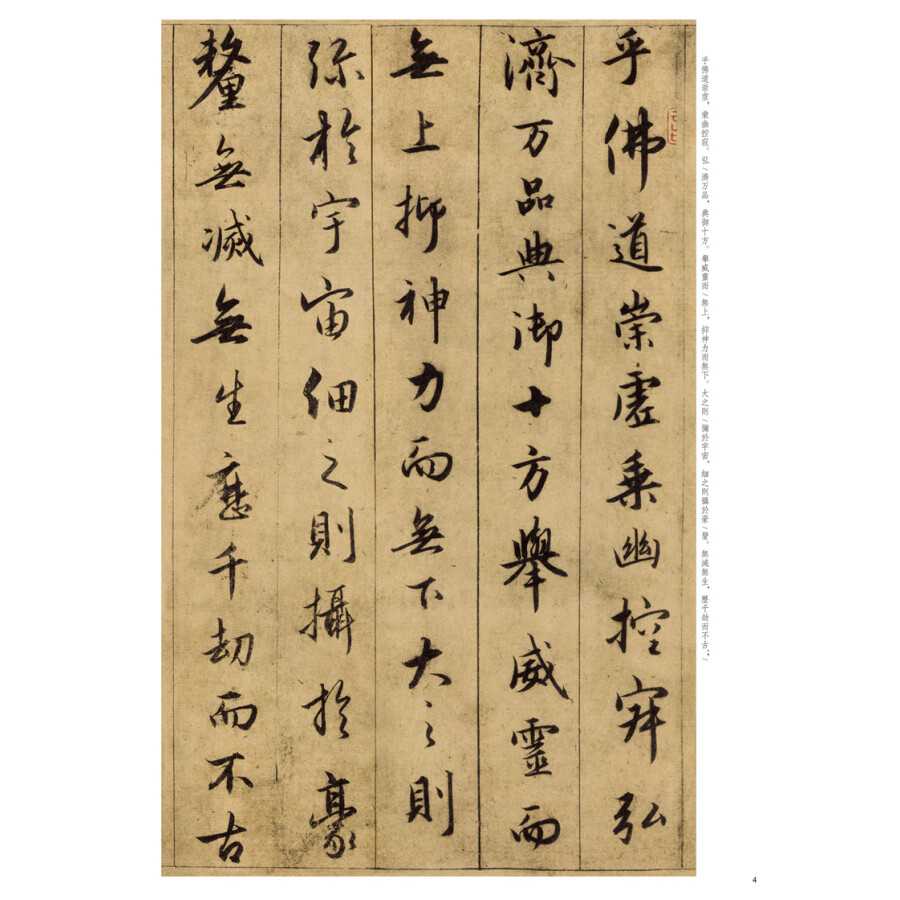 乎佛道崇虛乗幽控寂弘
濟万品典御十方舉威靈而
無上抑神力而無下大之則
弥於宇宙細之則攝於豪
釐無滅無生歷千劫而不古
乎佛道崇虛，乗幽控寂。弘/濟万品，典御十方。舉威靈而/無上，抑神力而無下。大之則/彌於宇宙，細之則攝於豪/釐。無滅無生，歷千劫而不古；/
4